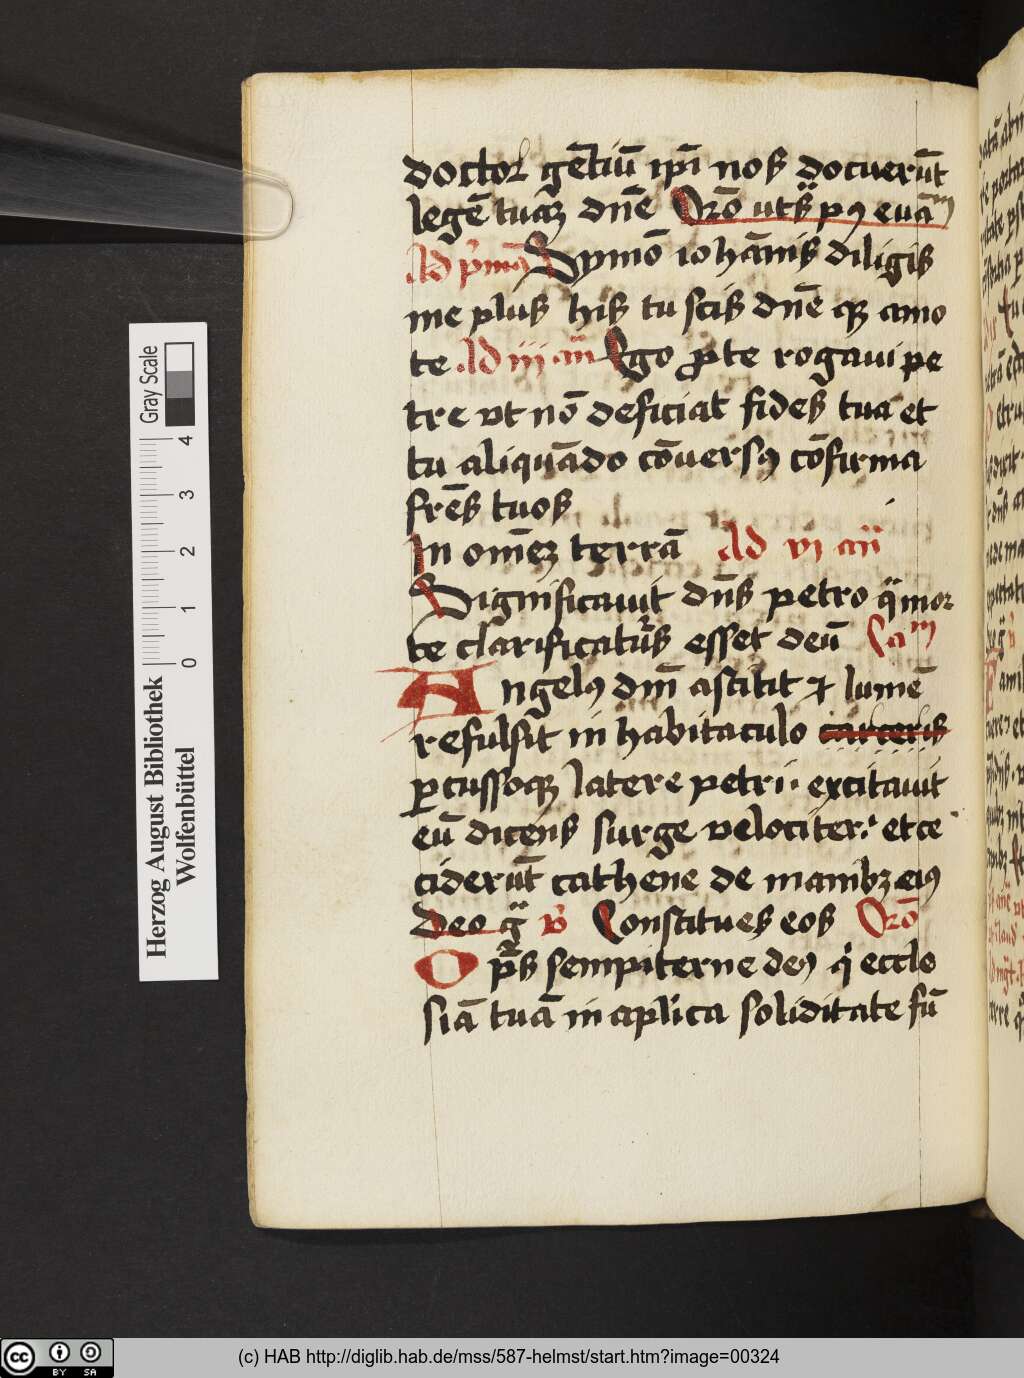 doctor gētiū ipī nos docuerūt
legē tuaꝫ dnē Orō ut sͣ pꝰ euāᵐ
Ad pͥmā Symō iohānis diligis
me plus his tu scis dnē qꝫ amo
te Ad iij an̄ Ego ꝓ te rogaui pe
tre vt nō deficiat fides tua et
tu aliquādo cōuersꝰ cōfirma
frēs tuos
In omēꝫ terrā Ad vj an̄
Significauit dn̄s petro qͣ mor
te clarificaturꝰ esset deū Caᵐ
Angelꝰ dn̄i astitit ⁊ lumē
refulsit in habitaculo carceris
ꝑcussoqꝫ latere petri excitauit
eū dicens surge velociter et ce
ciderūt cathene de manibꝫ eiꝰ
deo gͣ ꝟ Constitues eos Orō
Oꝑs sempiterne deꝰ qͥ eccle
siā tuā in aplica soliditate fū
Herzog August Bibliothek
Wolfenbüttel
0 1 2 3 4
Gray Scale
cc BY SA
(c) HAB http://diglib.hab.de/mss/587-helmst/start.htm?image=00324